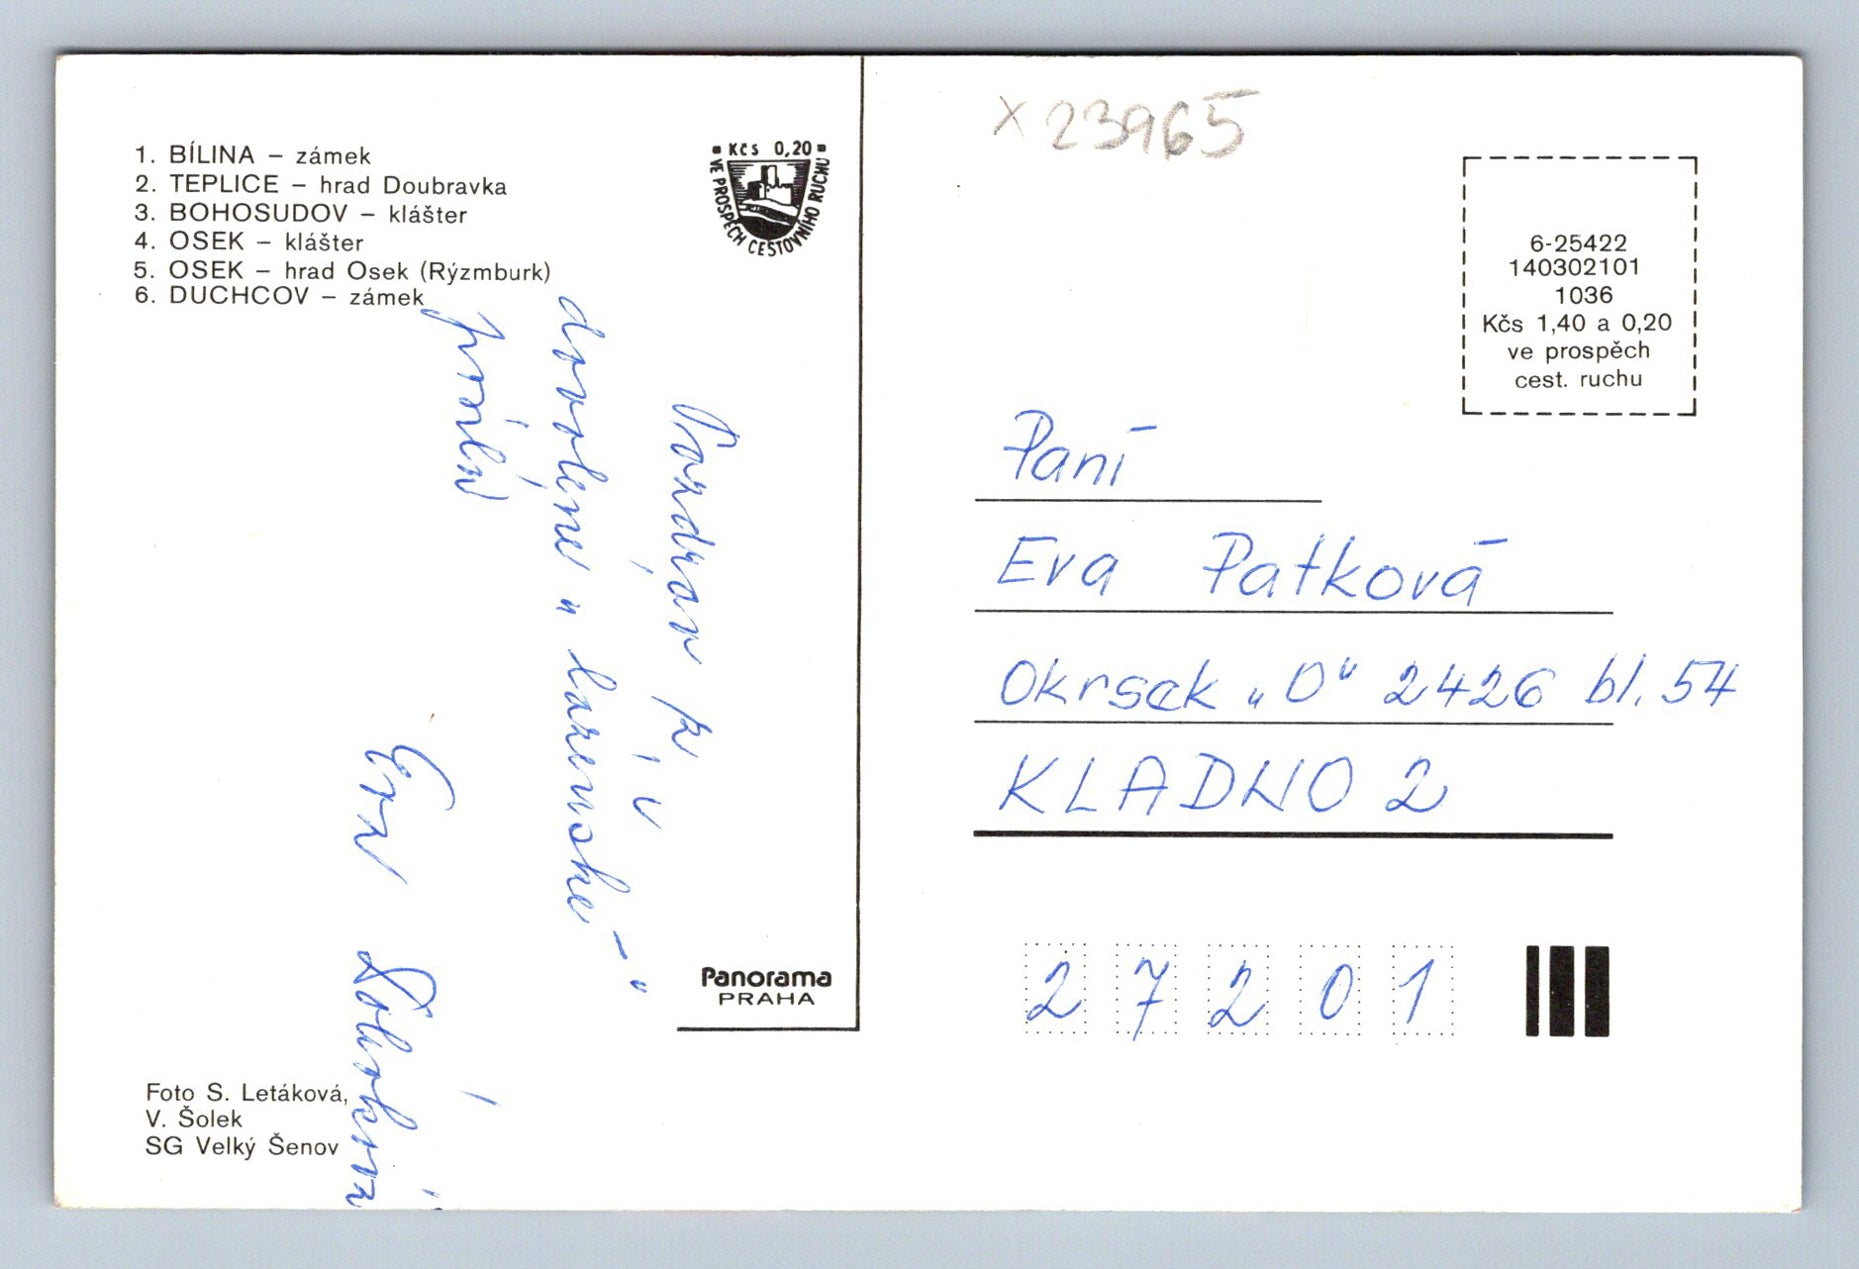 1. BÍLINA – zámek
2. TEPLICE – hrad Doubravka
3. BOHOSUDOV – klášter
4. OSEK – klášter
5. OSEK – hrad Osek (Rýzmburk)
6. DUCHCOV – zámek
Kčs 0,20
VE PROSPĚCH CESTOVNÍHO RUCHU
Pozdrav z
dovolené „lázeňské“
posílá
Eva
Panorama
PRAHA
Foto S. Letáková,
V. Šolek
SG Velký Šenov
x 23965
6-25422
140302101
1036
Kčs 1,40 a 0,20
ve prospěch
cest. ruchu
Paní
Eva Patková
Okrsek „O“ 2426 bl. 54
KLADNO 2
27201